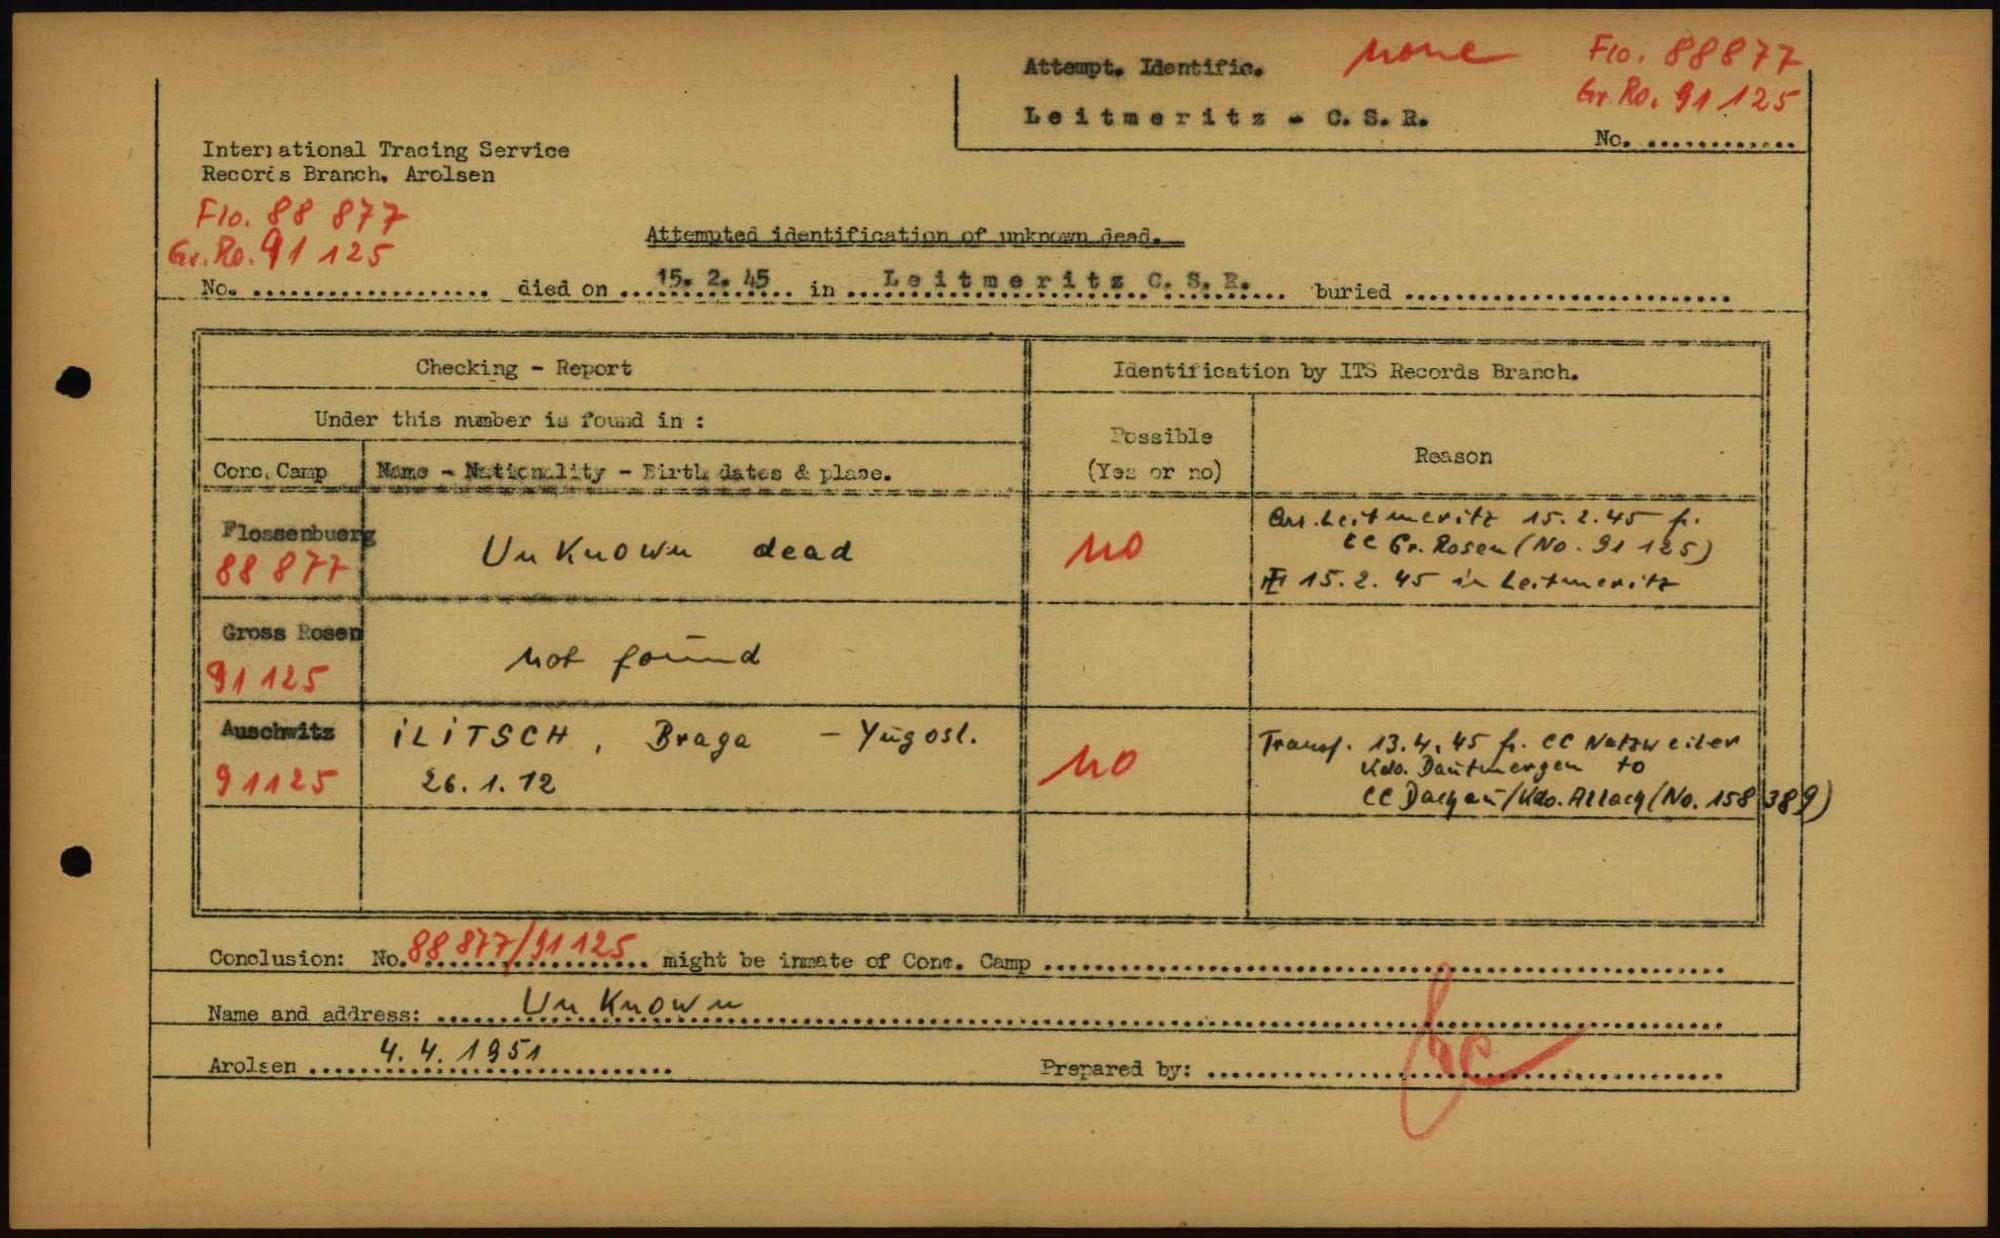 Attempt. Identific. none Flo. 88877
Gr. Ro. 91125
Leitmeritz - C. S. R.
No. ............
International Tracing Service
Records Branch. Arolsen
Flo. 88 877
Gr. Ro. 91 125
Attempted identification of unknown dead.
No. .................. died on 15. 2. 45 in Leitmeritz C. S. R. buried .........................
Checking - Report
Identification by ITS Records Branch.
Under this number is found in :
Possible
(Yes or no)
Reason
Conc. Camp Name - Nationality - Birth dates & place.
Flossenbuerg
88 877
Unknown dead
no
Arr. Leitmeritz 15.2.45 fr.
CC Gr. Rosen (No. 91 125)
15.2.45 in Leitmeritz
Gross Rosen
91 125
not found
Auschwitz
91125
iLiTSCH, Braga - Yugosl.
26.1.12
no
Transf. 13.4.45 fr. CC Natzweiler
Kdo. Dautmergen to
CC Dachau/Kdo. Allach (No. 158 389)
Conclusion: No. 88 877/91 125 might be inmate of Conc. Camp ..............................
Name and address: Unknown
Arolsen 4. 4. 1951
Prepared by: ..............................